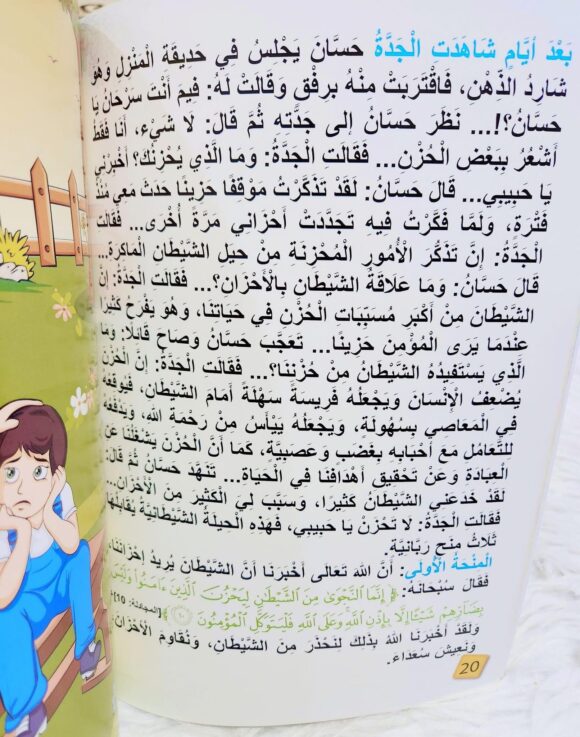 بَعْدَ أَيَّامٍ شَاهَدَتِ الْجَدَّةُ حَسَّانَ يَجْلِسُ فِي حَدِيقَةِ الْمَنْزِلِ وَهُوَ
شَارِدُ الذِّهْنِ، فَاقْتَرَبَتْ مِنْهُ بِرِفْقٍ وَقَالَتْ لَهُ: فِيمَ أَنْتَ سَرْحَانُ يَا
حَسَّانُ؟!... نَظَرَ حَسَّانُ إِلى جَدَّتِهِ ثُمَّ قَالَ: لَا شَيْءَ، أَنَا فَقَطْ
أَشْعُرُ بِبَعْضِ الْحُزْنِ... فَقَالَتِ الْجَدَّةُ: وَمَا الَّذِي يُحْزِنُكَ؟ أَخْبِرْنِي
يَا حَبِيبِي... قَالَ حَسَّانُ: لَقَدْ تَذَكَّرْتُ مَوْقِفًا حَزِينًا حَدَثَ مَعِي مُنْذُ
فَتْرَةٍ، وَلَمَّا فَكَّرْتُ فِيهِ تَجَدَّدَتْ أَحْزَانِي مَرَّةً أُخْرَى... فَقَالَت
الْجَدَّةُ: إِنَّ تَذَكُّرَ الْأُمُورِ الْمُحْزِنَةِ مِنْ حِيَلِ الشَّيْطَانِ الْمَاكِرَةِ...
قَالَ حَسَّانُ: وَمَا عَلَاقَةُ الشَّيْطَانِ بِالْأَحْزَانِ؟... فَقَالَتِ الْجَدَّةُ: إِنَّ
الشَّيْطَانَ مِنْ أَكْبَرِ مُسَبِّبَاتِ الْحُزْنِ فِي حَيَاتِنَا، وَهُوَ يَفْرَحُ كَثِيرًا
عِنْدَمَا يَرَى الْمُؤْمِنَ حَزِينًا... تَعَجَّبَ حَسَّانُ وَصَاحَ قَائِلًا: وَمَا
الَّذِي يَسْتَفِيدُهُ الشَّيْطَانُ مِنْ حُزْنِنَا؟... فَقَالَتِ الْجَدَّةُ: إِنَّ الْحُزْنَ
يُضْعِفُ الْإِنْسَانَ وَيَجْعَلُهُ فَرِيسَةً سَهْلَةً أَمَامَ الشَّيْطَانِ، فَيُوقِعُهُ
فِي الْمَعَاصِي بِسُهُولَةٍ، وَيَجْعَلُهُ يَيْأَسُ مِنْ رَحْمَةِ اللهِ، وَيَدْفَعُهُ
لِلتَّعَامُلِ مَعَ أَحْبَابِهِ بِغَضَبٍ وَعَصَبِيَّةٍ، كَمَا أَنَّ الْحُزْنَ يَشْغَلُنَا عَنِ
الْعِبَادَةِ وَعَنْ تَحْقِيقِ أَهْدَافِنَا فِي الْحَيَاةِ... تَنَهَّدَ حَسَّانُ ثُمَّ قَالَ:
لَقَدْ خَدَعَنِي الشَّيْطَانُ كَثِيرًا، وَسَبَّبَ لِيَ الْكَثِيرَ مِنَ الْأَحْزَانِ...
فَقَالَتِ الْجَدَّةُ: لَا تَحْزَنْ يَا حَبِيبِي، فَهَذِهِ الْحِيلَةُ الشَّيْطَانِيَّةُ يُقَابِلُهَا
ثَلَاثُ مِنَحٍ رَبَّانِيَّةٍ.
الْمِنْحَةُ الْأُولَى: أَنَّ اللهَ تَعَالَى أَخْبَرَنَا أَنَّ الشَّيْطَانَ يُرِيدُ إِحْزَانَنَا،
فَقَالَ سُبْحَانَهُ: ﴿إِنَّمَا النَّجْوَىٰ مِنَ الشَّيْطَٰنِ لِيَحْزُنَ الَّذِينَ ءَامَنُوا۟ وَلَيْسَ
بِضَآرِّهِمْ شَيْـًٔا إِلَّا بِإِذْنِ اللَّهِ ۚ وَعَلَى اللَّهِ فَلْيَتَوَكَّلِ الْمُؤْمِنُونَ ١٠﴾ [المجادلة: 10]،
وَلَقَدْ أَخْبَرَنَا اللهُ بِذَلِكَ لِنَحْذَرَ مِنَ الشَّيْطَانِ، وَنُقَاوِمَ الْأَحْزَانَ،
وَنَعِيشَ سُعَدَاءَ.
20